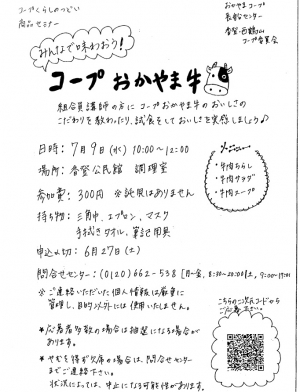 コープくらしのつどい
商品セミナー
おかやまコープ
長船センター
香登・西鶴山
コープ委員会
みんなで味わおう!
コープおかやま牛
組合員講師の方に コープおかやま牛のおいしさの
こだわりを教わったり、試食をしておいしさを実感しましょう♪
日時: 7月9日(水) 10:00~12:00
場所: 香登公民館 調理室
参加費: 300円 ※託児はありません
持ち物: 三角巾、エプロン、マスク
手拭きタオル、筆記用具
申込〆切: 6月27日(土)
メニュー
・牛肉ちらし
・牛肉サラダ
・牛肉スープ
問合せセンター: (0120)662-538 [月~金、8:30~20:00 土、9:00~17:00]
※ご連絡いただいた個人情報は厳重に
管理し、目的以外には使用いたしません。
*応募者多数の場合は抽選になる場合が
あります。
*やむを得ず欠席の場合は、問合せセンター
までご連絡下さい。
状況によっては、中止になる可能性があります。
こちらの二次元コードから